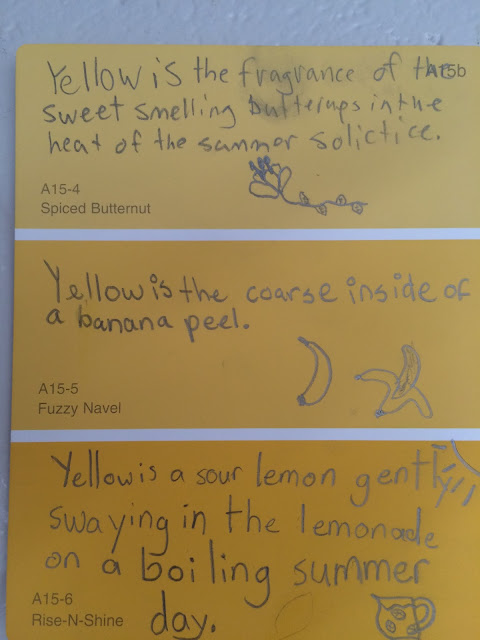 Yellow is the fragrance of the
A15b
sweet smelling buttercups in the
heat of the summer solictice.
A15-4
Spiced Butternut
Yellow is the coarse inside of
a banana peel.
A15-5
Fuzzy Navel
Yellow is a sour lemon gently
swaying in the lemonade
on a boiling summer
day.
A15-6
Rise-N-Shine